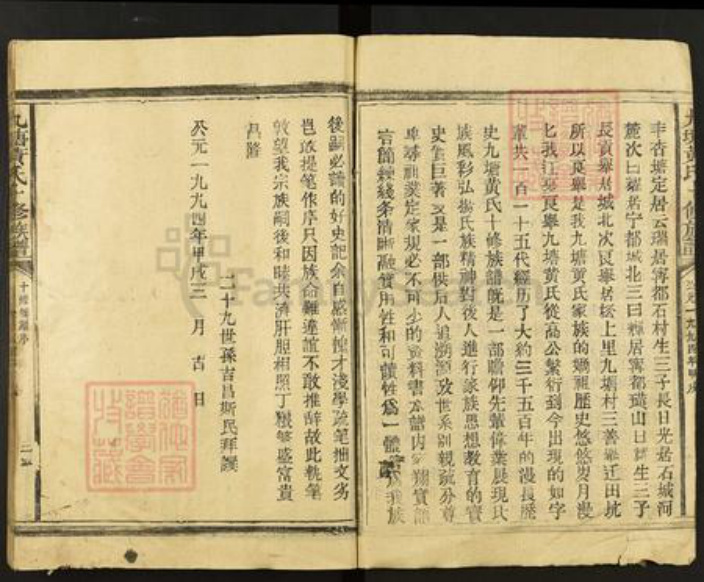 丰杏塘定居云瑞居寧都石村生三子長日光居石城河
麓次曰耀居宁都城北三曰輝居寧都璜山日
生三子
長貢舉居城北次良舉居崧上里九塘村三善舉迁田坑
所以良舉是我九塘黄氏家族的
祖歷史悠悠岁月漫
匕我江夏良舉九塘黄氏從高公繁衍到今出現的如字
輩共一百一十五代經历了大約三千五百年的漫長歷
史九塘黄氏十修族譜既是一部瞻仰先輩偉業展現氏
族風彩弘揚氏族精神對後人進行家族思想教育的寶
史
巨著又是一部供后人追溯源
世系别親疏分尊
卑
定家規必不可少的資料書本譜内
翔實
言簡
綫条清晰融實用性和可讀性爲一體
我族
後嗣必讀的好史記余自感慚惶才淺學疏笔拙文劣
岂敢提笔作序只因族命難違誼不敢推辞故此執笔
敦望我宗族嗣後和睦共濟肝胆相照丁
盛富貴
昌隆
二十九世孫吉昌斯民拜
公元一九九四年甲戌三月吉日
九塘黄氏十修族譜
九塘黄氏十修族譜
公元一九九四年甲戌
FamilySearch